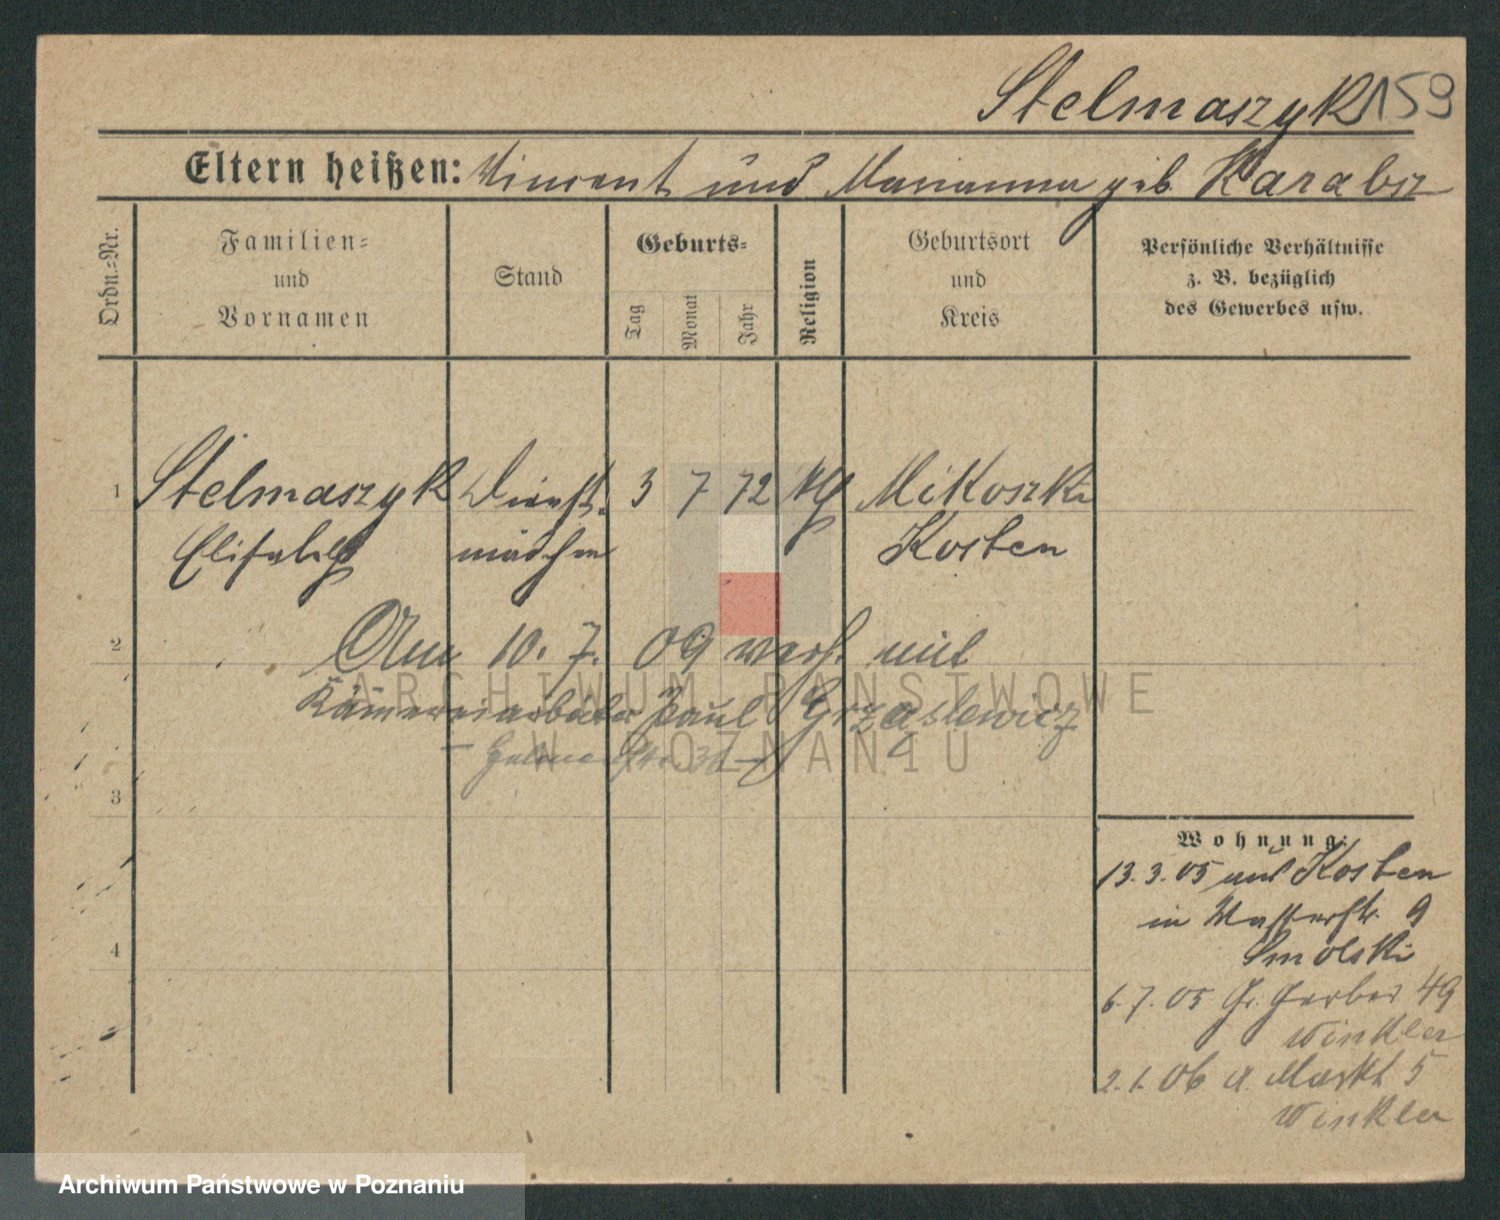 Stelmaszyk 159
Eltern heißen: Vincent und Marianna geb. Karabsz
Ordn.-Nr.
Familien-
und
Vornamen
Stand
Geburts-
Tag
Monat
Jahr
Religion
Geburtsort
und
Kreis
Persönliche Verhältnisse
z. B. bezüglich
des Gewerbes usw.
1 Stelmaszyk Dienst- 3 7 72 kth Mikoszki
Elisabeth mädchen Kosten
2
Am 10. 7. 09 verh. mit
Kämmereiarbeiter Paul Grząslewicz
3
4
Wohnung:
13. 3. 05 aus Kosten
in Wasserstr. 9
Smolski
6. 7. 05 Gr. Gerber 49
Winkler
2. 1. 06 A. Markt 5
Winkler
ARCHIWUM PAŃSTWOWE
W POZNANIU
Archiwum Państwowe w Poznaniu